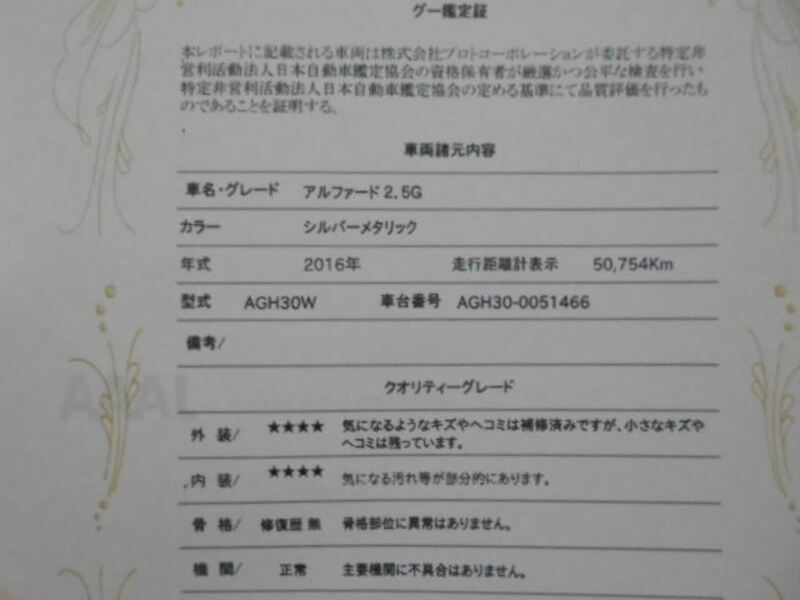 グー鑑定証
本レポートに記載される車両は株式会社プロトコーポレーションが委託する特定非
営利活動法人日本自動車鑑定協会の資格保有者が厳選かつ公平な検査を行い
特定非営利活動法人日本自動車鑑定協会の定める基準にて品質評価を行ったも
のであることを証明する。
車両諸元内容
車名・グレード アルファード 2.5G
カラー シルバーメタリック
年式 2016年 走行距離計表示 50,754Km
型式 AGH30W 車台番号 AGH30-0051466
備考/
クオリティーグレード
外 装/ ★★★★ 気になるようなキズやヘコミは補修済みですが、小さなキズや
ヘコミは残っています。
内 装/ ★★★★ 気になる汚れ等が部分的にあります。
骨 格/ 修復歴 無 骨格部位に異常はありません。
機 関/ 正常 主要機関に不具合はありません。